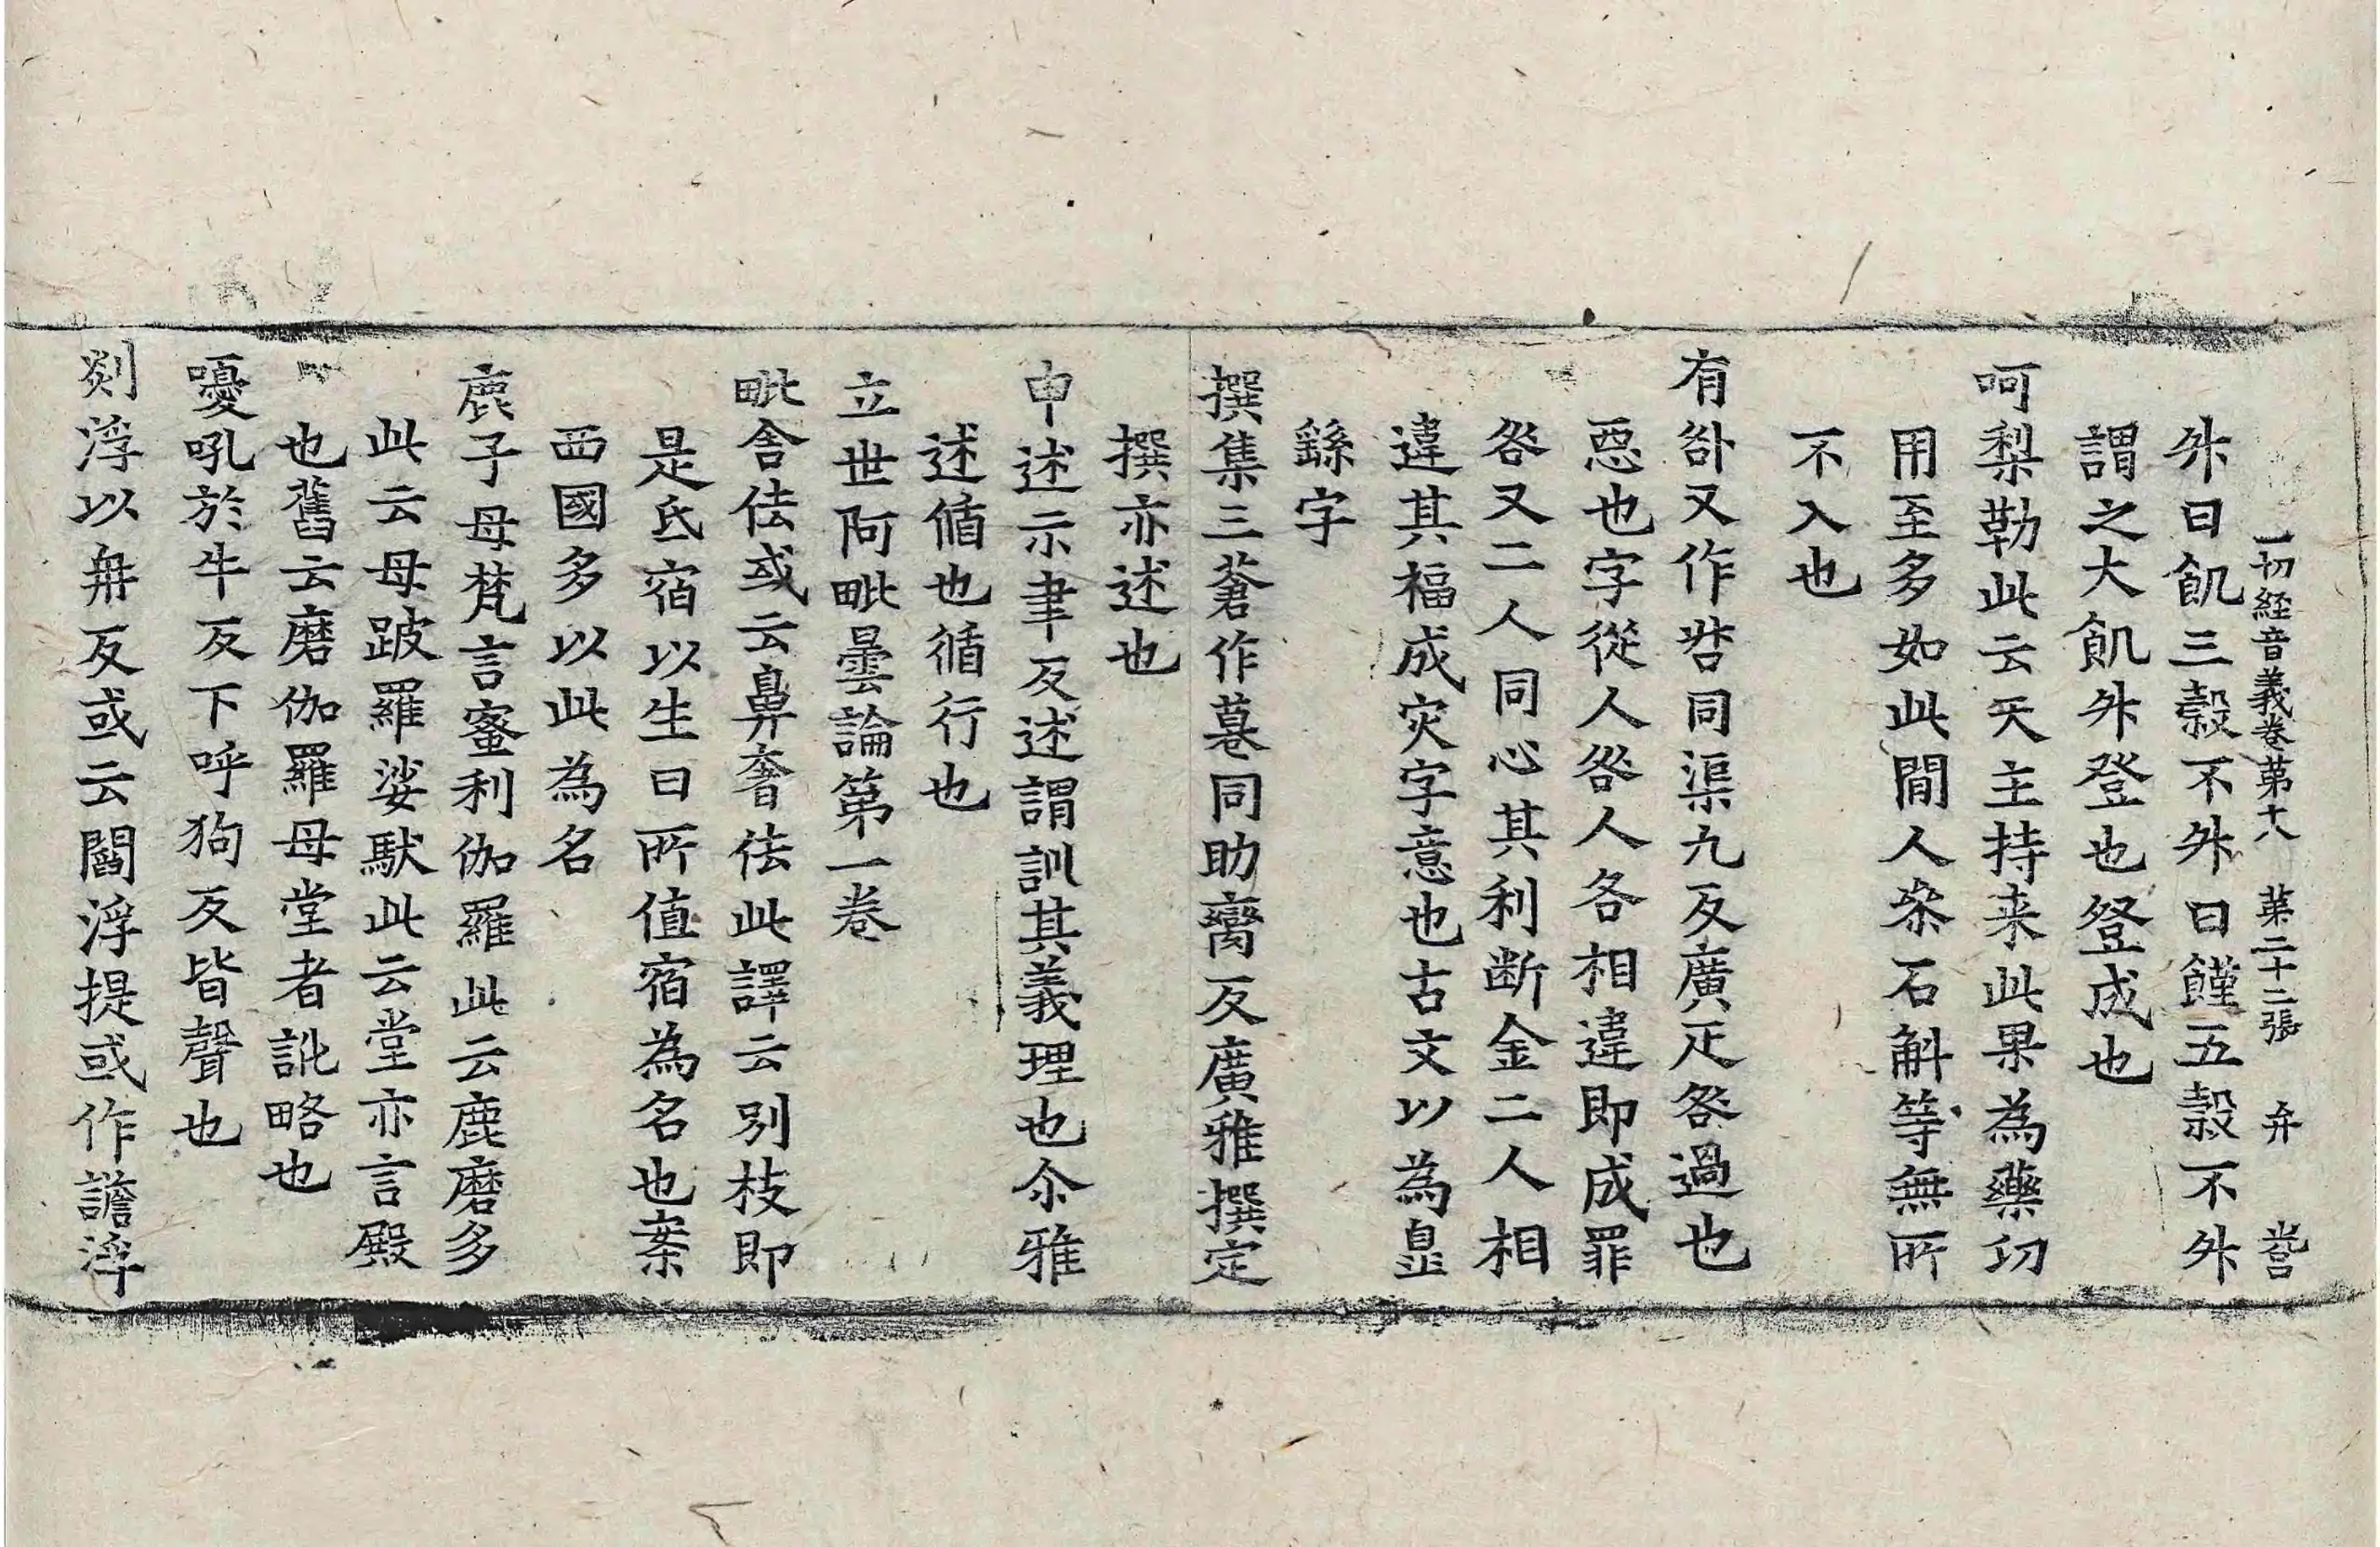 一切経音義卷第十八 第二十二張 弁
外曰飢三穀不外曰饉五穀不外
謂之大飢外登也登成也
呵梨勒此云天主持来此果為藥功
用至多如此閒人叅石斛等無所
不入也
有咎又作㖈同渠九反廣疋咎過也
惡也字從人咎人各相違即成罪
咎又二人同心其利断金二人相
違其福成灾字意也古文以為㿝
繇字
撰集三蒼作㢲同助臠反廣雅撰定
撰亦述也
申述示聿反述謂訓其義理也尒雅
述循也循行也
立世阿毗曇論第一卷
毗舍佉或云鼻奢佉此譯云別枝即
是氐宿以生日所值宿為名也案
西國多以此為名
鹿子母梵言蜜利伽羅此云鹿磨多
此云母跛羅娑馱此云堂亦言殿
也舊云磨伽羅母堂者訛略也
嚘吼於牛反下呼狗反皆聲也
剡浮以冉反或云閻浮提或作譫浮